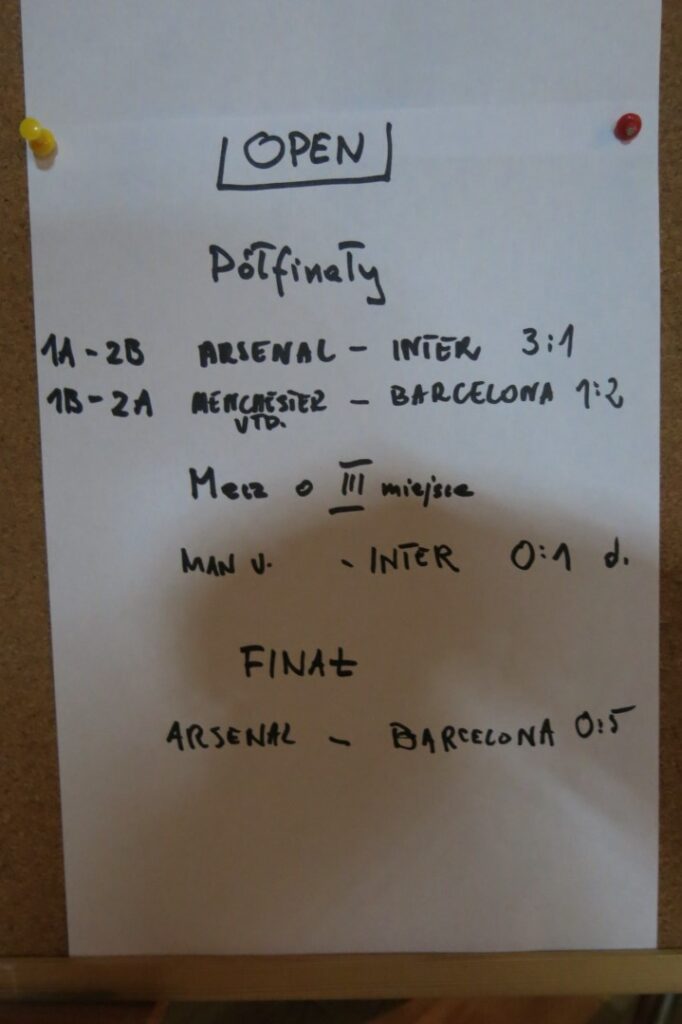 OPEN
Półfinały
1A - 2B ARSENAL - INTER 3:1
1B - 2A MENCHESTER - BARCELONA 1:2
VTD.
Mecz o III miejsce
MAN U. - INTER 0:1 d.
FINAŁ
ARSENAL - BARCELONA 0:5